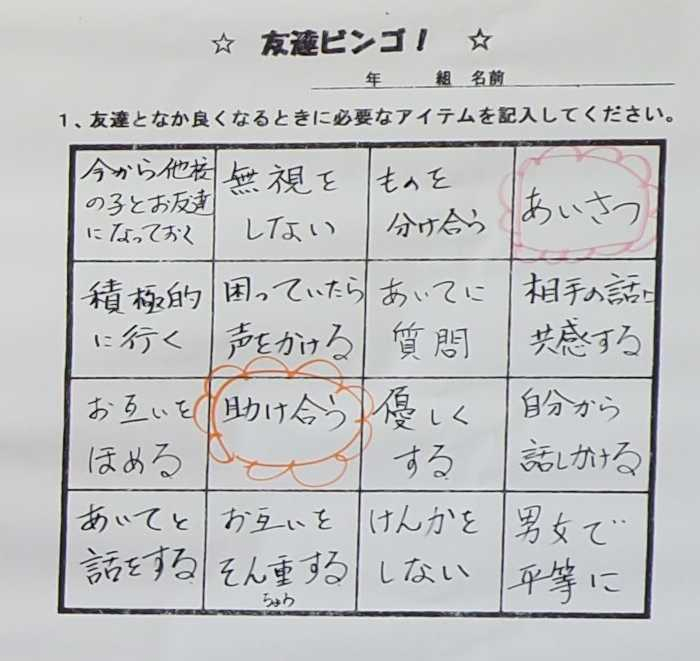 ☆ 友達ビンゴ！ ☆
年 組 名前
1、友達となか良くなるときに必要なアイテムを記入してください。
今から他校
の子とお友達
になっておく
無視を
しない
ものを
分け合う
あいさつ
積極的
に行く
困っていたら
声をかける
あいてに
質問
相手の話に
共感する
お互いを
ほめる
助け合う
優しく
する
自分から
話しかける
あいてと
話をする
お互いを
そん重する
ちょう
けんかを
しない
男女で
平等に